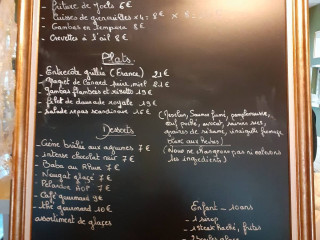 - Friture de Joels 6€
- Cuisses de grenouilles x4 = 8€
- Gambas en tempura 8€
- Crevettes à l'ail 8€
Plats
- Entrecôte grillée (France) 21€
- Magret de Canard poire, miel 21€
- Gambas flambées et risotto 19€
- filet de daurade royale 19€
- salade repas scandinave 15€
(Gravlax, Saumon fumé, pamplemousse,
œuf poché, avocat, saurus,
graines de sésame, vinaigrette fumage,
blanc aux herbes)
(Nous ne changeons pas ni enlevons
les ingredients)
Desserts
- Crème brûlée aux agrumes 7€
- intense chocolat noir 7€
- Baba au Rhum 7€
- Nougat glacé 7€
- Pélardon AOP 7€
- Café gourmand 9€
- thé gourmand 10€
assortiment de glaces
Enfant _ 10 ans
- 1 sirop
- 1 steak haché, frites
- 2 boules glace